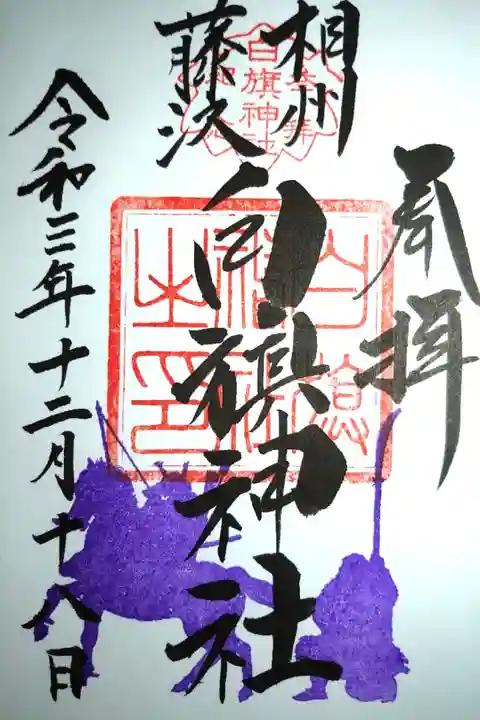 奉拝
相州
藤沢
白旗神社
令和三年十二月十八日
白旗神社